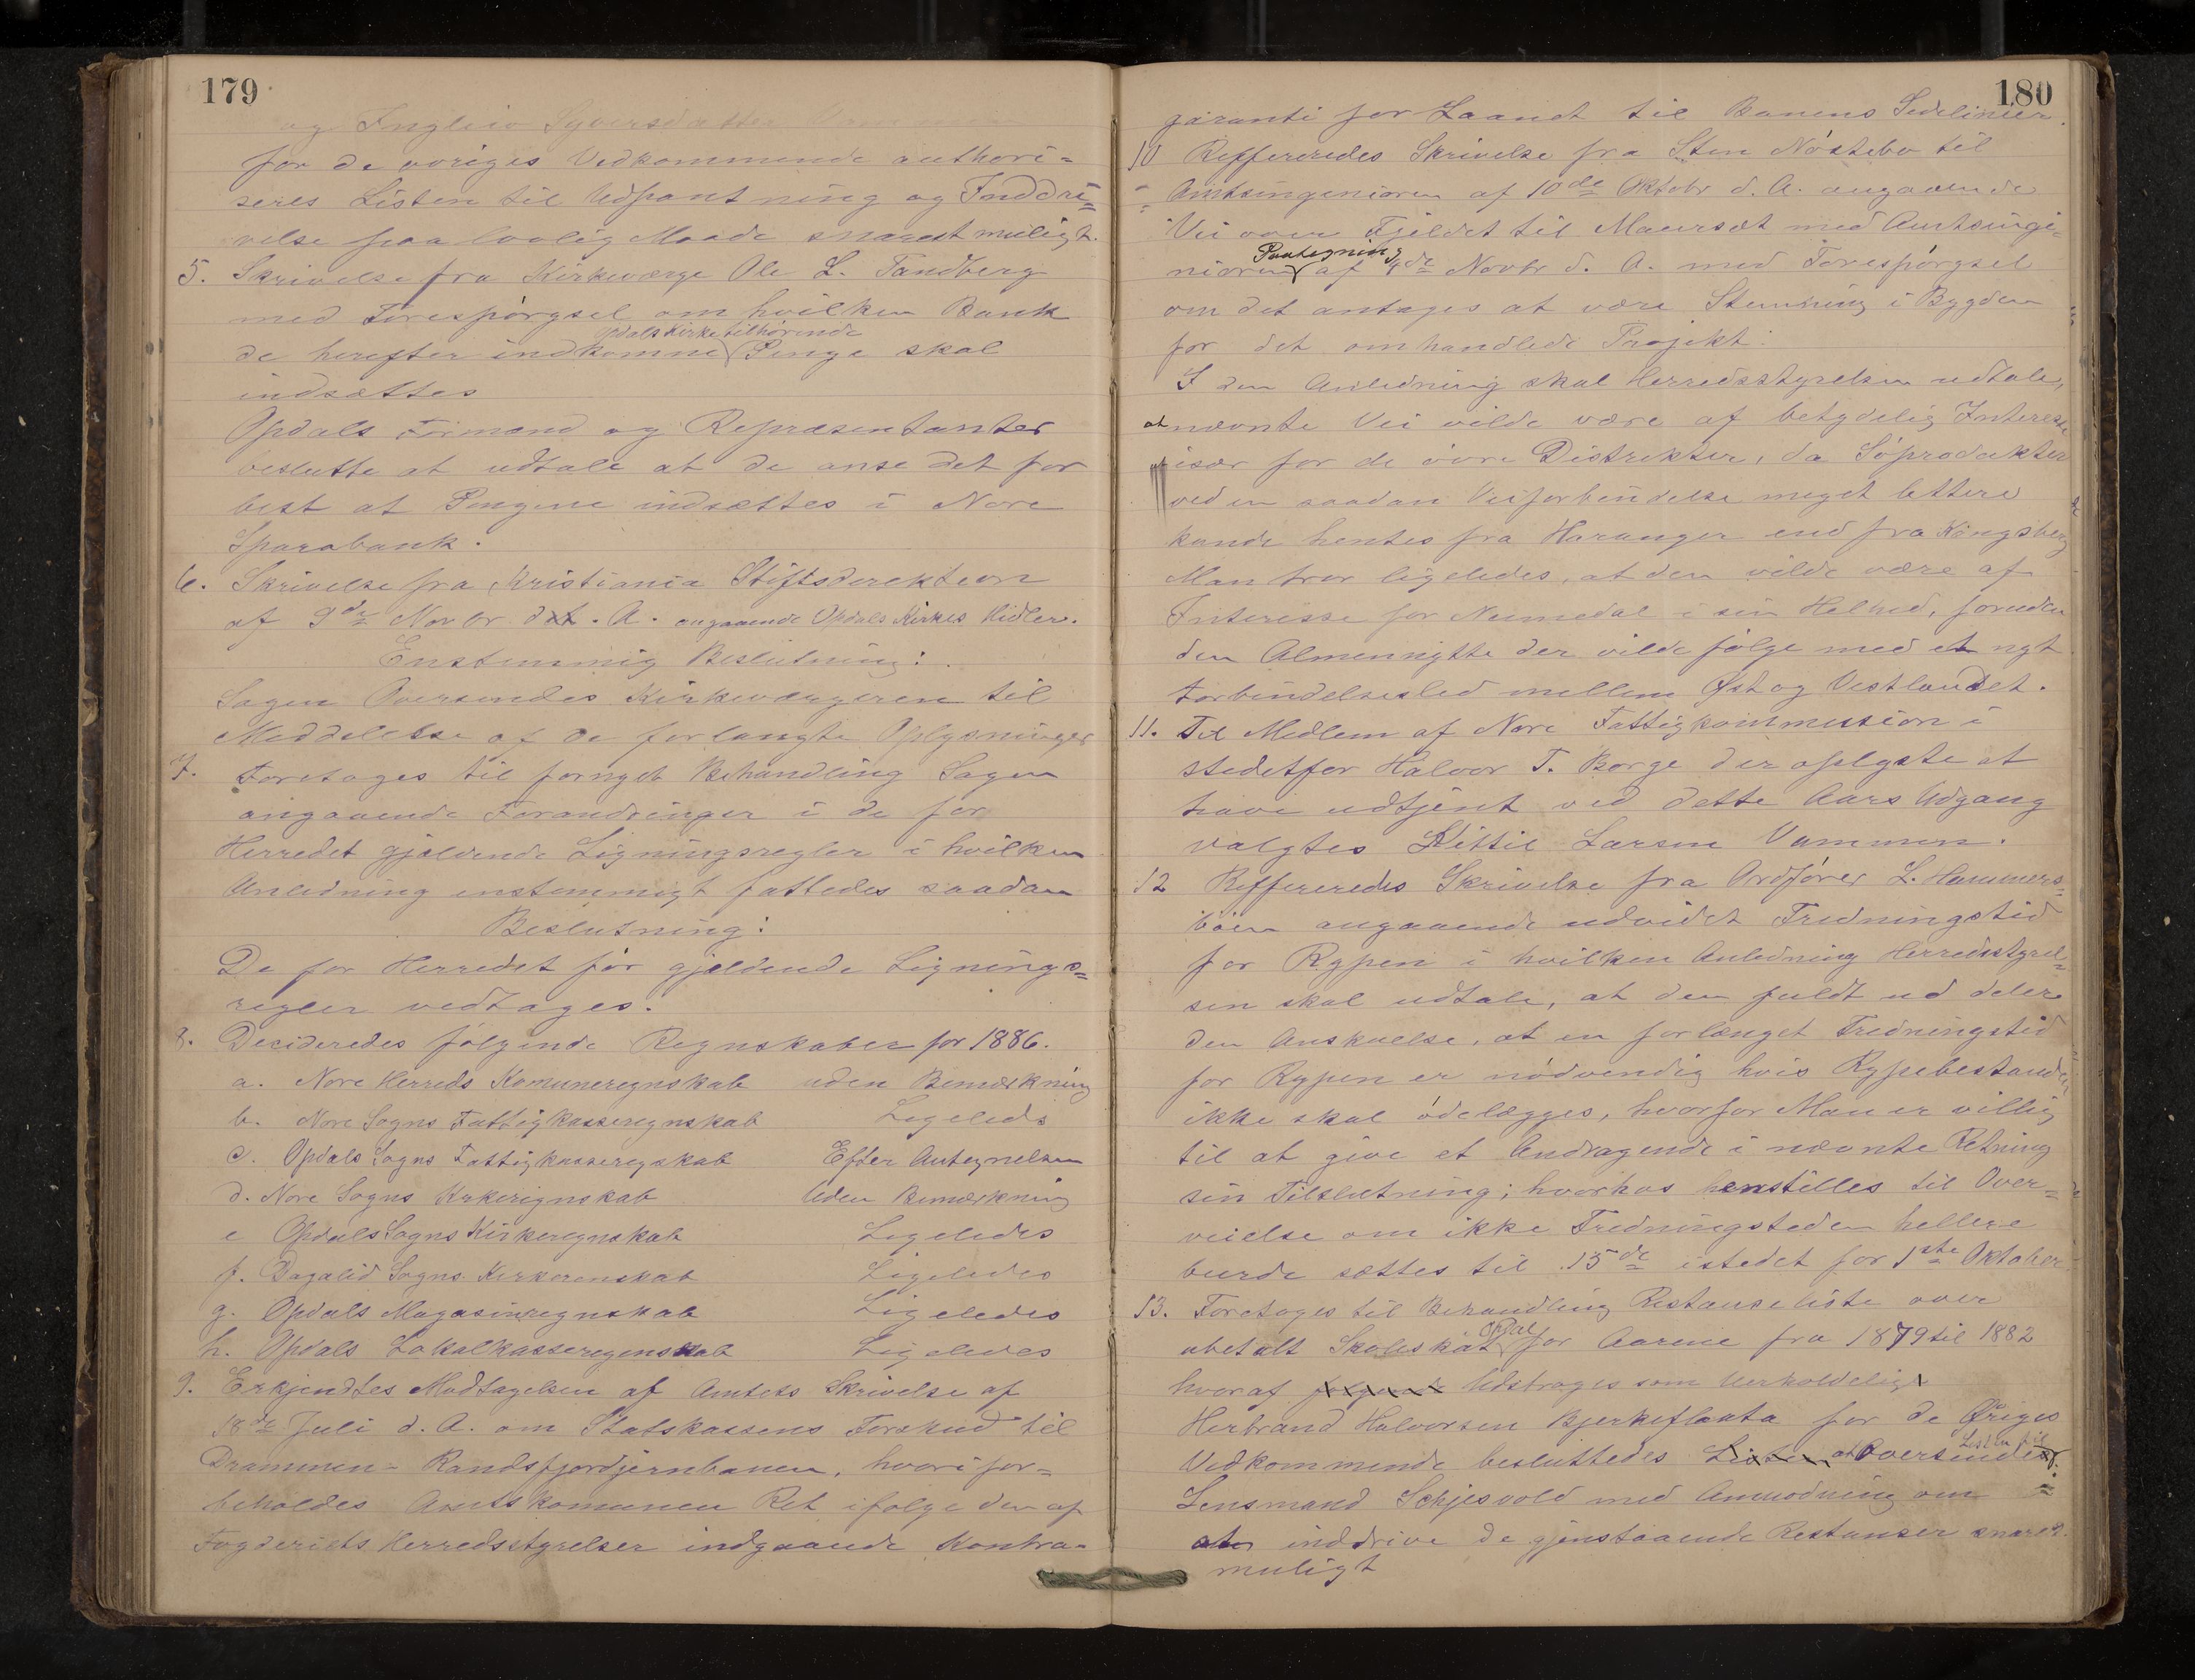 179
og Ingleiv Syversdatter
for de øvriges Vedkommende authori=
seres Listen til Udpantning og Inddri=
velse paa lovlig Maade snarest muligt.
5. Skrivelse fra Kirkeværge Ole L. Tandberg
med Forespørgsel om hvilken Bank
Opdals Kirke tilhørende
de herefter indkomne Penge skal
indsættes
Opdals Formænd og Repræsentanter
beslutte at udtale at de anse det for
best at Pengene indsættes i Nore
Sparabank.
6. Skrivelse fra Kristiania Stiftsdirektion
af 9de Novbr d. A. angaaende Opdals Kirkes Midler.
Enstemmig Beslutning:
Sagen Oversendes Kirkeværgeren til
Meddelelse af de forlangte Oplysninger
7. Foretages til fornyet Behandling Sagen
angaaende Forandringer i de for
Herredet gjældende Ligningsregler i hvilken
Anledning enstemmigt fattedes saadan
Beslutning:
De for Herredet før gjeldende Lignings=
regler vedtages.
8. Decideredes følgende Regnskaber for 1886.
a. Nore Herreds Komuneregnskab uden Bemærkning
b. Nore Sogns Fattigkasseregnskab Ligeleds
c. Opdals Sogns Fattigkasseregskab Efter Antegnelsen
d. Nore Sogns Kirkerignskab Uden Bemærkning
e Opdals Sogns Kirkeregnskab Ligeledes
f. Dagalid Sogns Kirkerenskab Ligeledes
g. Opdals Magasinregnskab Ligeledes
h. Opdals Lokalkasseregenskab Ligeledes
9. Erkjendtes Modtagelsen af Amtets Skrivelse af
18de Juli d. A. om Statskassens Forskud til
Drammen- Randsfjordjernbanen, hvori for=
beholdes Amtskomunen Ret ifølge den af
Fogderiets Herredsstyrelser indgaaende Kontra-
180
garanti for Laanet til Banens Sidelinier.
10 Reffereredes Skrivelse fra Sten Nøstebo til
Amtsingeniøren af 10de Oktobr d. A. angaaende
Vei over Fjeldet til Maursæt med Amtsingi-
Paategning
niørens af de Novbr d. A. med Forespørgsel
om det antages at være Stemning i Bygden
for det omhandlede Projekt.
I den Anledning skal Herredsstyrelsen udtale,
at nævnte Vei vilde være af betydelig Interesse
især for de øvre Distrikter, da Søprodukter
ved en saadan Veiforbindelse meget lettere
kunde hentes fra Haranger end fra Kongsberg
Man tror ligeledes, at den vilde være af
Interesse for Numedal i sin Helhed, foruden
den Almennytte der vilde følge med et nyt
Forbindelsesled mellem Øst og Vestlandet.
11. Til Medlem af Nore Fattigkommission i
stedetfor Halvor T. Borge der oplyste at
have udtjent ved dette Aars Udgang
valgtes Kittil Larsen Vammen.
12 Reffereredes Skrivelse fra Ordfører L. Hammers=
bøen angaaende udvidet Fredningstid
for Rypen i hvilken Anledning Herredsstyrel=
sen skal udtale, at den fuldt ud deler
den Anskuelse, at en forlænget Fredningstid
for Rypen er nødvendig hvis Rypebestanden
ikke skal ødelægges, hvorfor Man er villig
til at give et Andragende i nævnte Retning
sin Tilslutning; hvorhos henstilles til Over=
veielse om ikke Fredningstiden hellere
burde sættes til 15de istedet for 1ste Oktober
13. Foretages til Behandling Restanseliste over
Opdal
ubetalt Skoleskat for Aarene fra 1879 til 1882
hvoraf Udstrages som Uerholdelig
Herbrand Halvorsen Bjerkeflaata for de Øvriges
Listen til
Vedkommende besluttedes Listen at Oversende
Lensmand Schjesvold med Anmodning om
at inddrive de gjenstaaende Restanser snarest
muligt